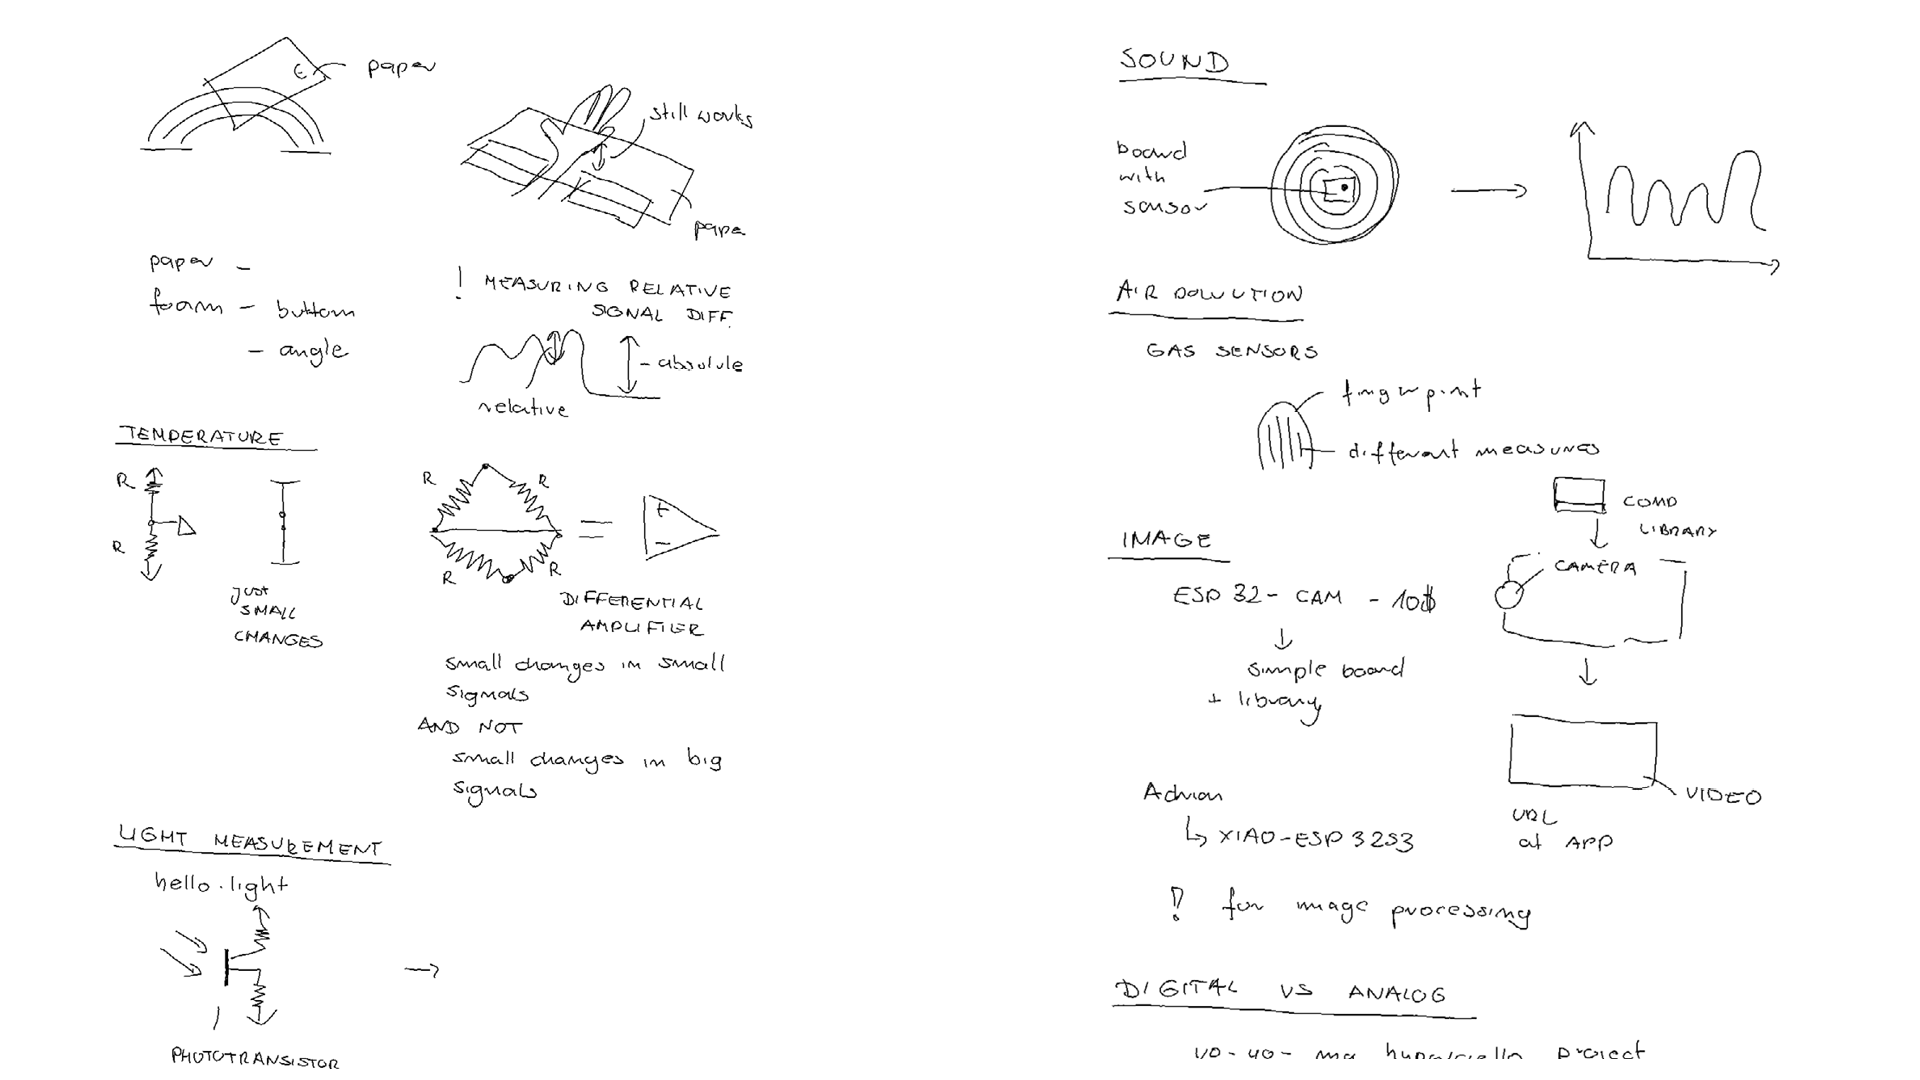 ϵ
paper
still works
pape
paper -
foam - button
- angle
! MEASURING RELATIVE
SIGNAL DIFF.
- absolute
relative
TEMPERATURE
R
R
just
SMALL
CHANGES
R
R
R
R
=
+
-
DIFFERENTIAL
AMPLIFIER
small changes in small
signals
AND NOT
small changes in big
signals
LIGHT MEASUREMENT
hello.light
PHOTOTRANSISTOR
SOUND
board
with
sensor
AIR POLUUTION
GAS SENSORS
fingerprint
different measures
IMAGE
ESP 32 - CAM - 10$
simple board
+ library
COMP
LIBRARY
CAMERA
VIDEO
URL
at APP
Adrian
XIAO-ESP32S3
! for image processing
DIGITAL VS ANALOG
project